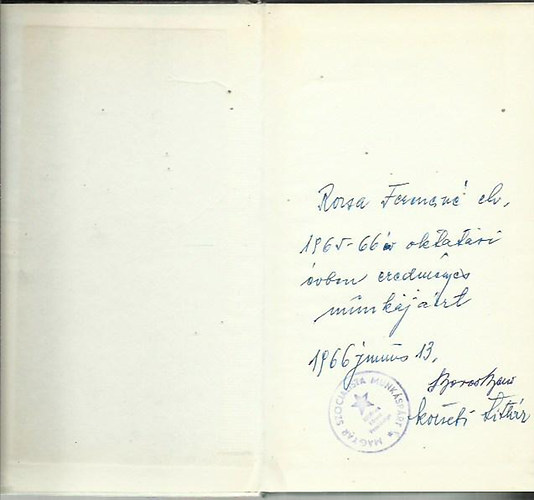 Rózsa Ferencné elv.
1965-66 év oktatási
évben eredményes
munkájáért
1966 június 13.
körzeti titkár
MAGYAR SZOCIALISTA MUNKÁSPÁRT